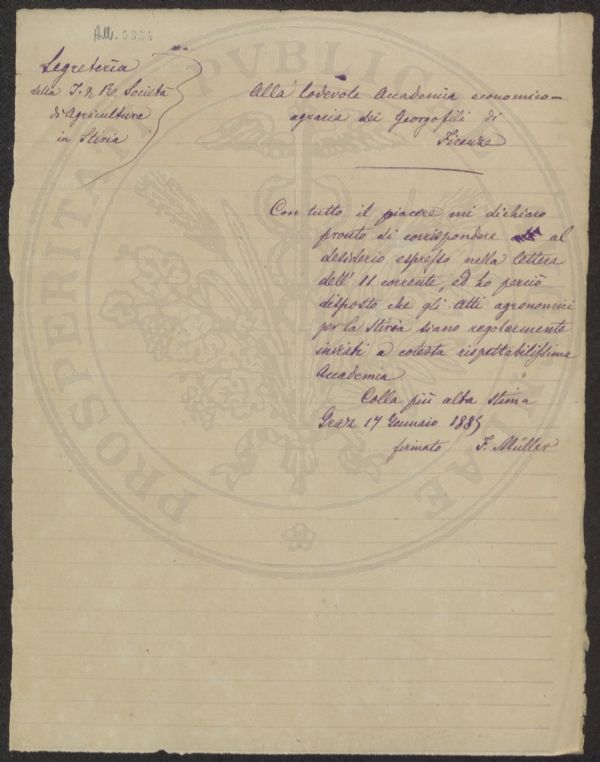 AM. 3334
Segreteria
della I. e R. Società
di Agricoltura
in Stiria
Alla lodevole Accademia economico-
agraria dei Georgofili di
Firenze
Con tutto il piacere mi dichiaro
pronto di corrispondere al
desiderio espresso nella lettera
dell' 11 corrente, ed ho perciò
disposto che gli Atti agronomici
per la Stiria siano regolarmente
inviati a codesta rispettabilissima
Accademia
Colla più alta stima
Graz 17 Gennaio 1885
firmato F. Müller
PROSPERITATI PVBLICAE